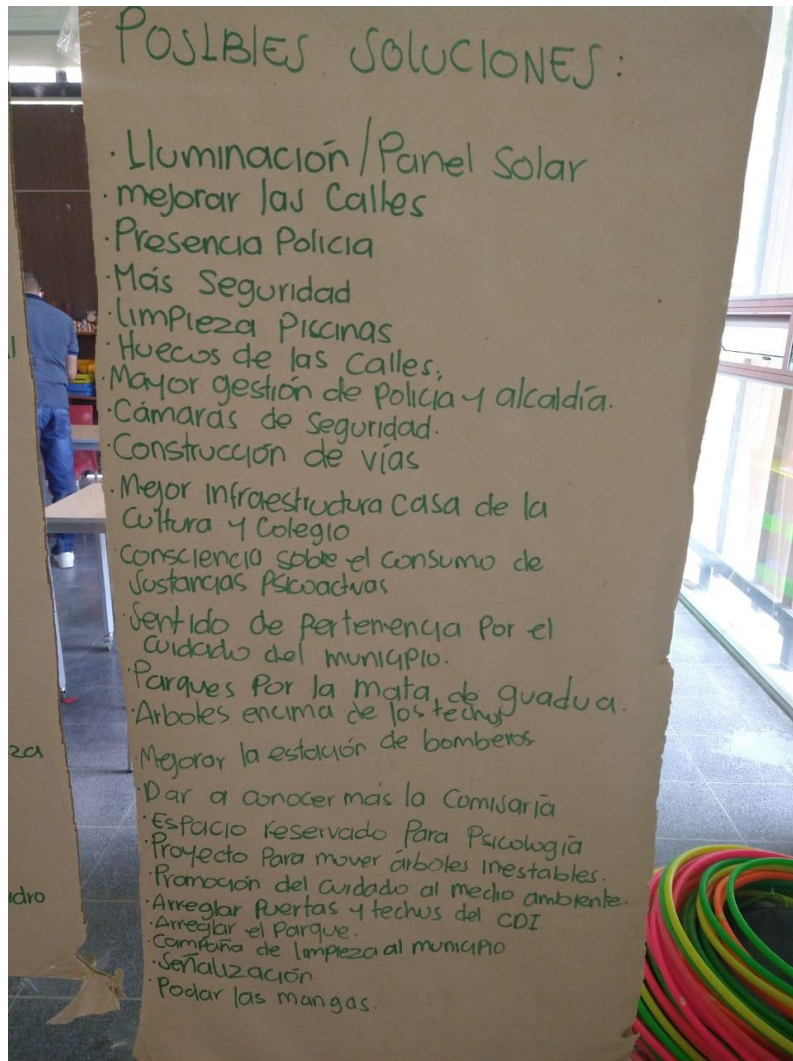 POSIBlES SOLUCIONES:
· Iluminación/Panel Solar
· mejorar las Calles
· Presencia Policia
· Más Seguridad
· limpieza Piscinas
· Huecos de las calles,
· Mayor gestión de policia y alcaldía.
· Cámaras de seguridad.
· Construcción de vías
· Mejor infraestructura casa de la
Cultura y Colegio
· consciencia sobre el consumo de
sustancias Psicoactivas
· Sentido de Pertenencia Por el
cuidado del municipio.
· Parques Por la mata de guadua.
· Arboles encima de los techos
· Mejorar la estación de bomberos
· Dar a conocer más la Comisaría
· Espacio reservado Para Psicología
· Proyecto Para mover árboles inestables.
· Promoción del cuidado al medio ambiente.
· Arreglar Puertas y techos del CDI
· Arreglar el Parque.
· Campaña de limpieza al municipio
· Señalización
· Podar las mangas.